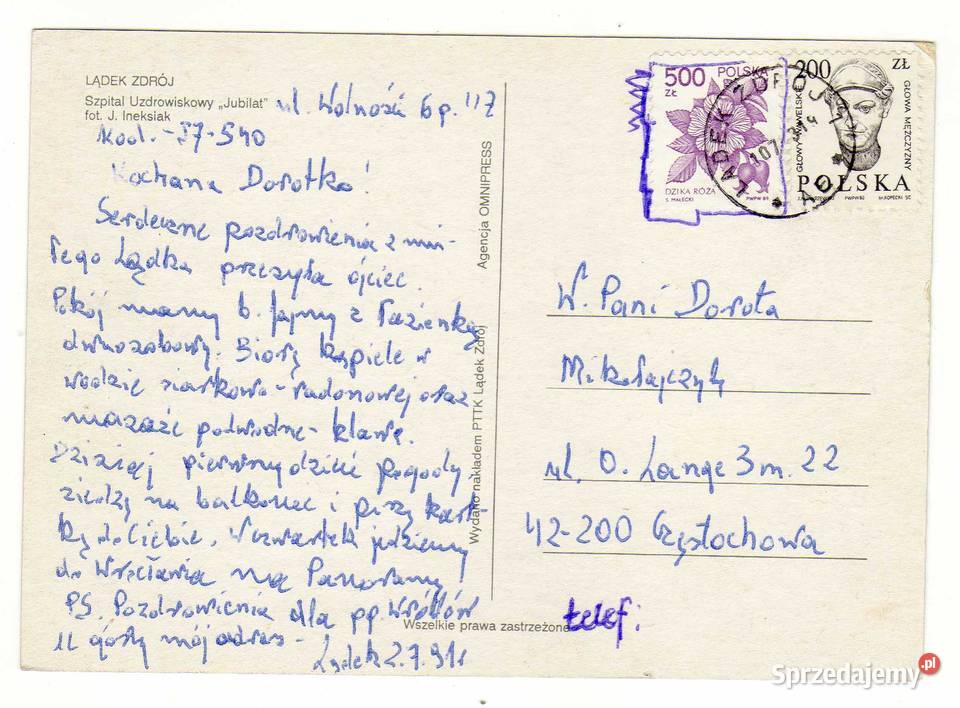 LĄDEK ZDRÓJ
Szpital Uzdrowiskowy „Jubilat"
fot. J. Ineksiak
ul. Wolności 6 p. 117
Kod. - 57-540
Kochana Dorotko!
Serdeczne pozdrowienia z mil-
łego Lądka przesyła ojciec.
Pokój mamy b. fajny z łazienką
dwuosobowy. Biorę kąpiele w
wodzie siarkowo-radonowej oraz
masaże podwodne - klawe.
Dzisiej pierwszy dzień pogody
siedzę na balkonie i piszę kart-
kę do Ciebie. W czwartek jedziemy
do Wrocławia na Panoramę
PS. Pozdrowienia dla pp.
U góry mój adres -
Lądek 2.7.91r
Agencja OMNIPRESS
Wydano nakładem PTTK Lądek Zdrój
Wszelkie prawa zastrzeżone
500 ZŁ
POLSKA
DZIKA RÓŻA
S. MAŁECKI
PWPW 89
200 ZŁ
GŁOWY WAWELSKIE
GŁOWA MĘŻCZYZNY
POLSKA
PWPW 86
LĄDEK ZDRÓJ 1
W. Pani Dorota
Mikołajczyk
ul. O. Lange 3 m. 22
42-200 Częstochowa
telef:
Sprzedajemy.pl